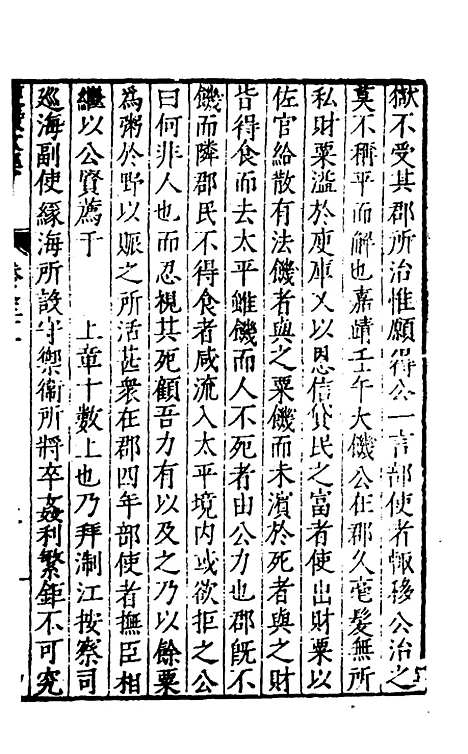 獄不受其郡所治惟願得公一言部使者輙移公治之
莫不稱平而解也嘉靖壬午大饑公在郡久毫髮無所
私財粟溢於庾庫又以恩信貸民之富者使出財粟以
佐官給散有法饑者與之粟饑而未濱於死者與之財
皆得食而去太平雖饑而人不死者由公力也郡既不
饑而隣郡民不得食者咸流入太平境内或欲拒之公
曰何非人也而忍視其死顧吾力有以及之乃以餘粟
為粥於野以賑之所活甚衆在郡四年部使者撫臣相
繼以公賢薦于　上章十數上也乃拜淛江按察司
巡海副使緣海所設守禦衞所將卒姦利繁鉅不可究